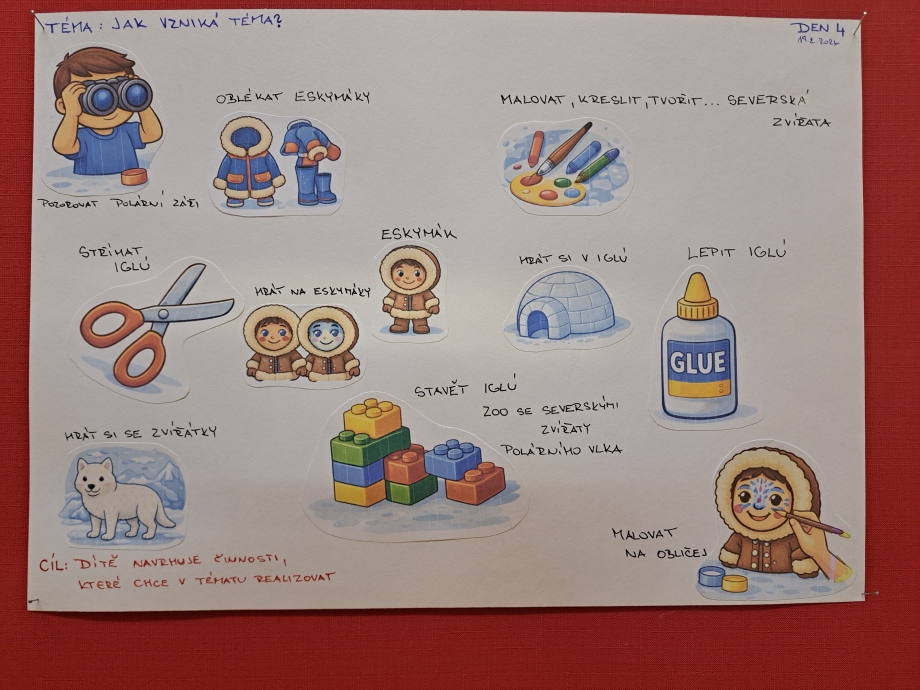 TÉMA: JAK VZNIKÁ TÉMA?
DEN 4
19.2.2026
OBLÉKAT ESKYMÁKY
MALOVAT, KRESLIT, TVOŘIT... SEVERSKÁ
ZVÍŘATA
POZOROVAT POLÁRNÍ ZÁŘI
STŘÍHAT
IGLÚ
HRÁT NA ESKYMÁKY
ESKYMÁK
HRÁT SI V IGLÚ
LEPIT IGLÚ
GLUE
STAVĚT IGLÚ
ZOO SE SEVERSKÝMI
ZVÍŘATY
POLÁRNÍHO VLKA
HRÁT SI SE ZVÍŘÁTKY
MALOVAT
NA OBLIČEJ
CÍL: DÍTĚ NAVRHUJE ČINNOSTI,
KTERÉ CHCE V TÉMATU REALIZOVAT